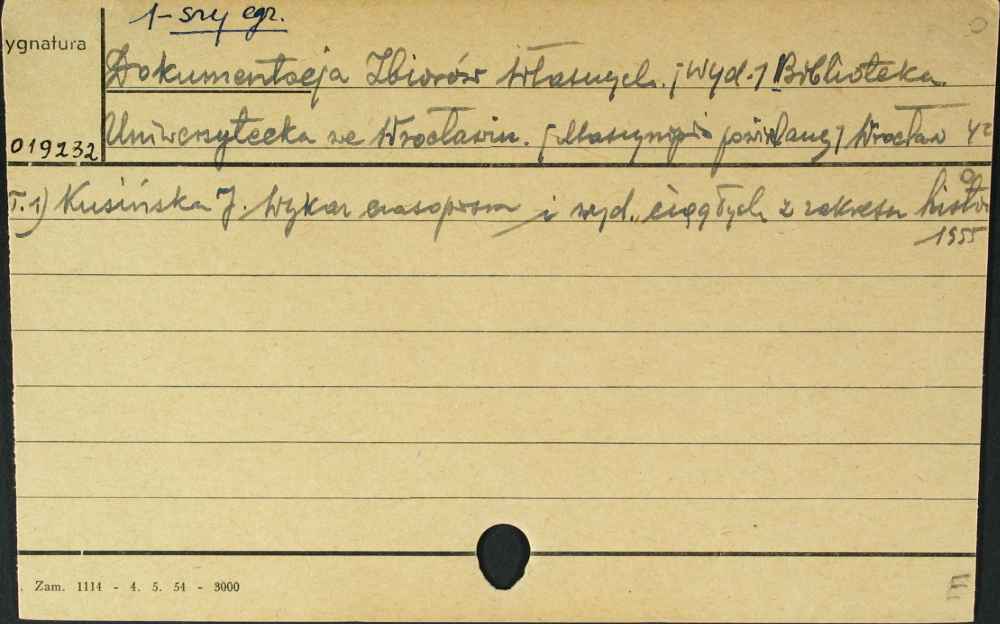 1-szy egz.
ygnatura
Dokumentacja Zbiorów Własnych. [Wyd.] Biblioteka
Uniwersytecka we Wrocławiu. [Maszynopis powielany] Wrocław 4°
019232
T.1) Kusińska J. Wykaz czasopism i wyd. ciągłych z zakresu histor
1955
. Zam. 1114 - 4. 5. 54 - 3000